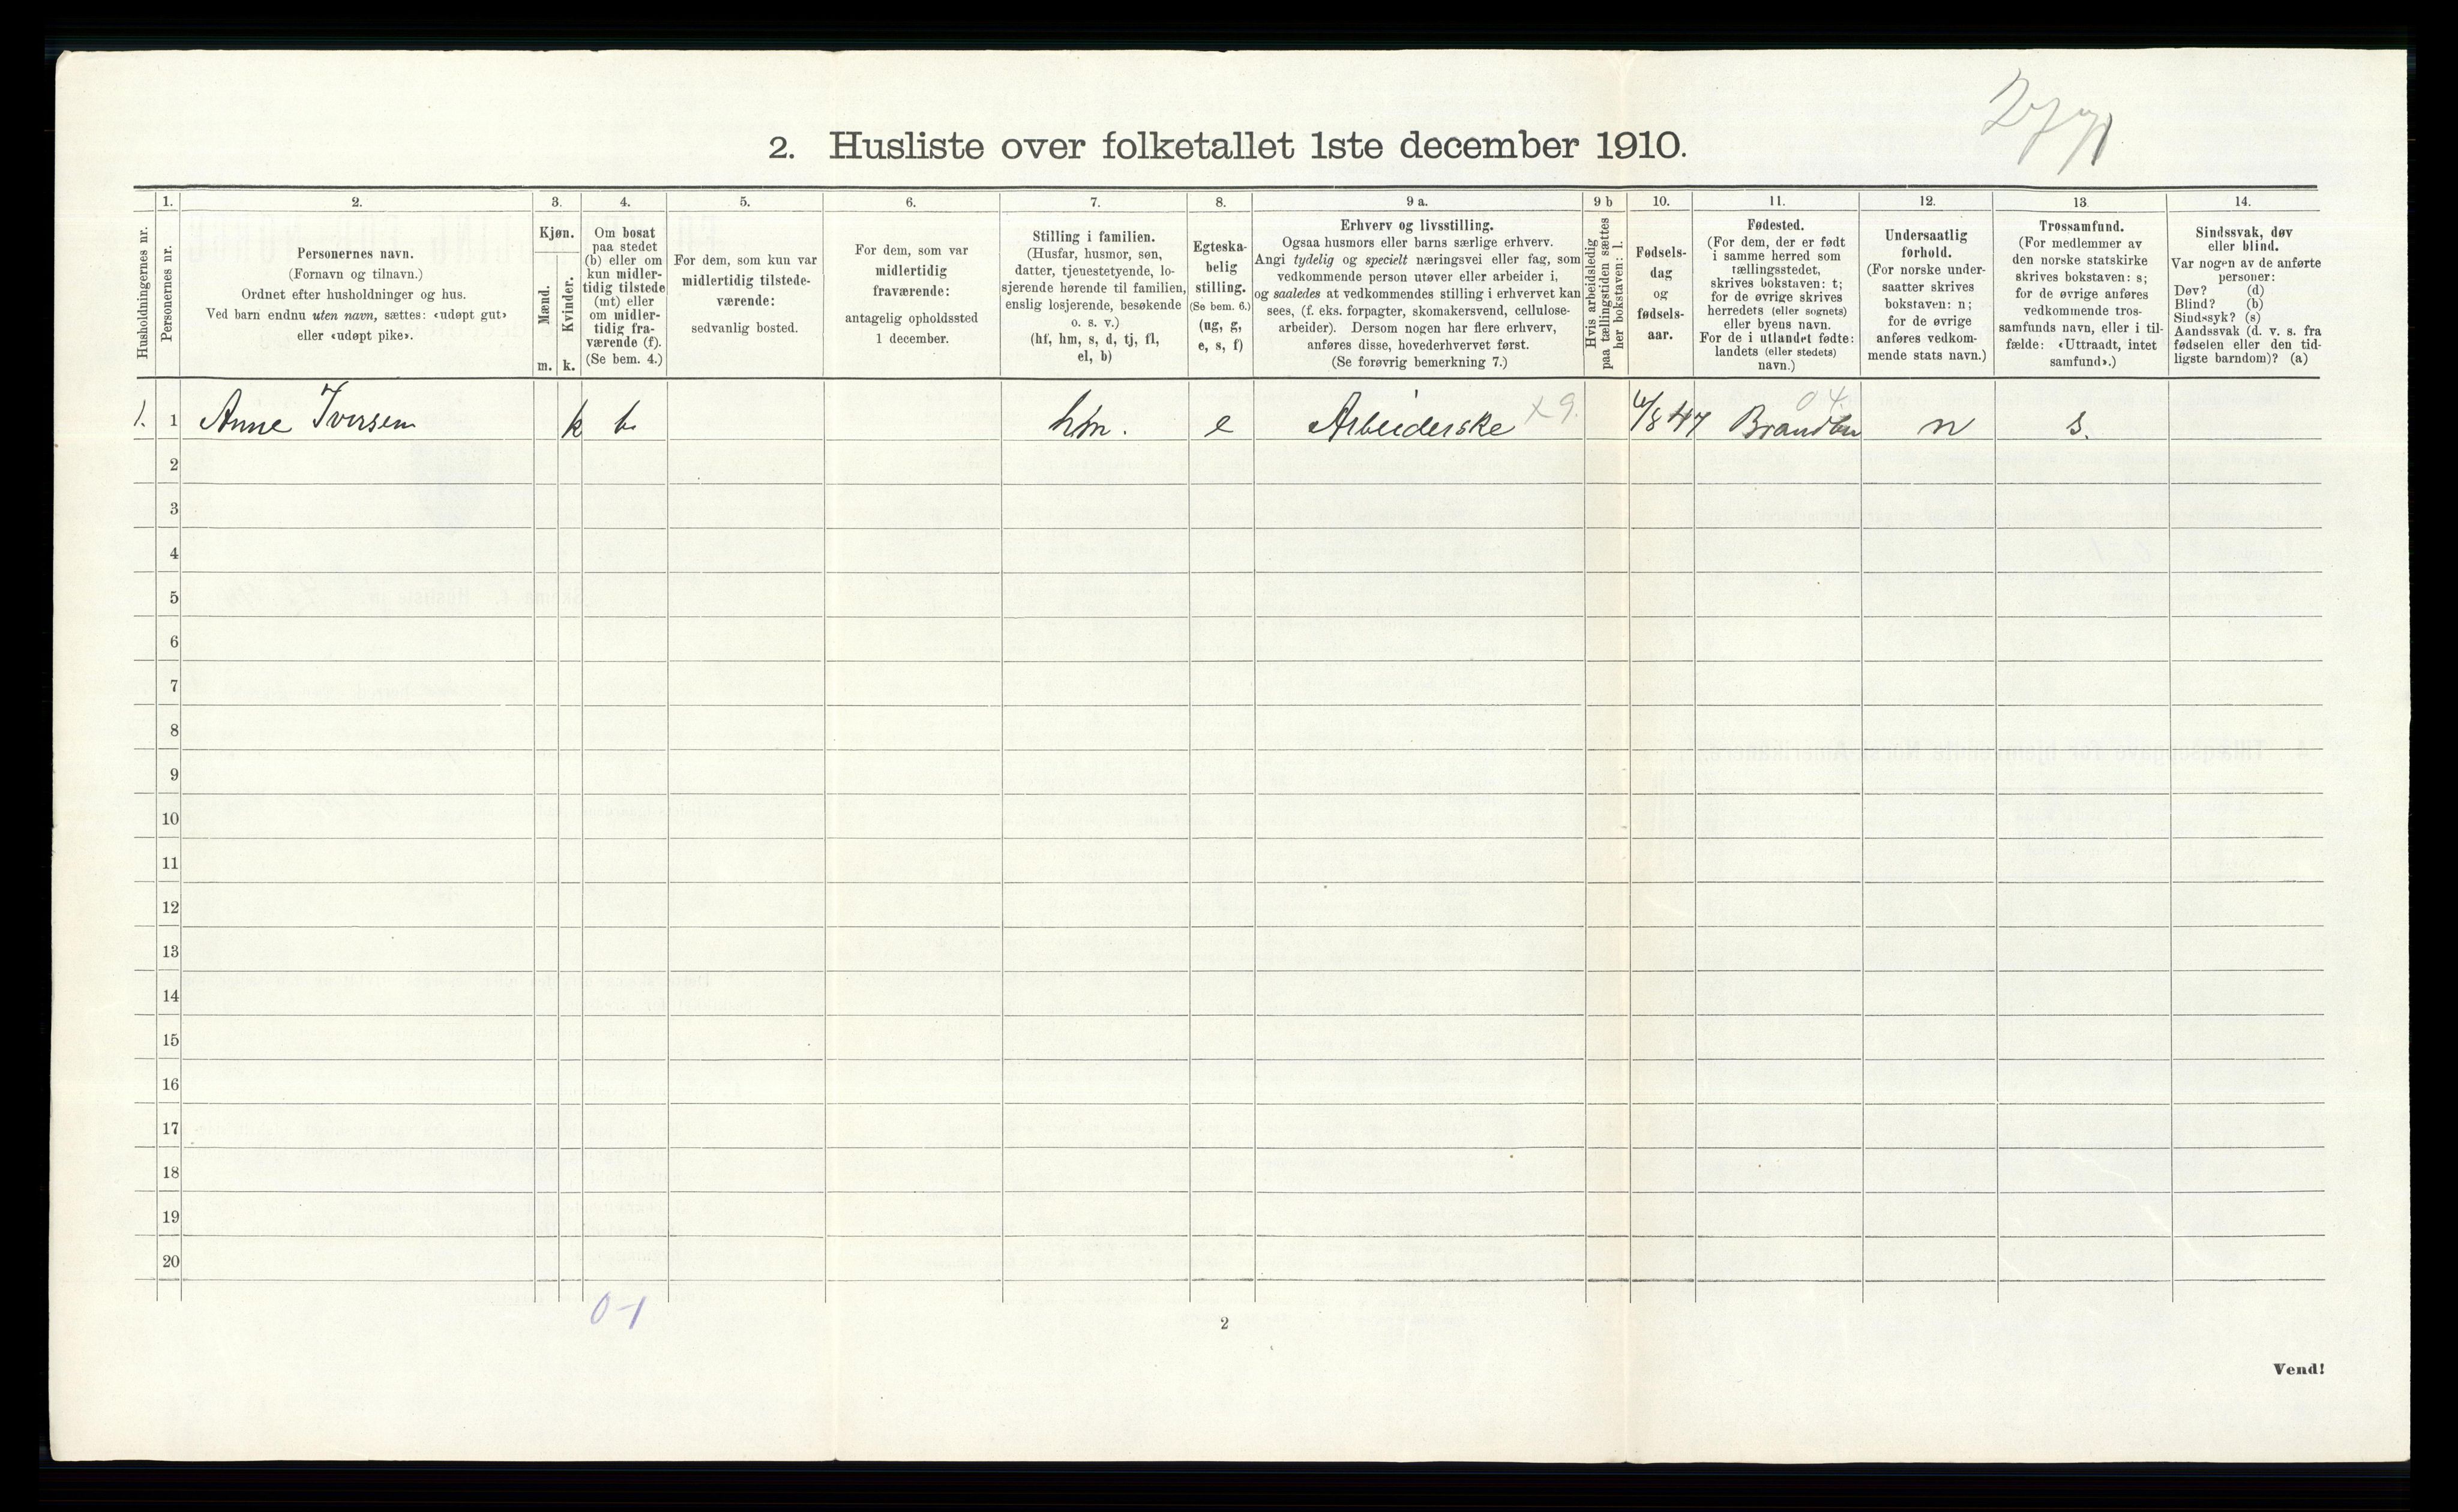 2. Husliste over folketallet 1ste december 1910.
Husholdningernes nr.
1.
Personernes nr.
2.
Personernes navn.
(Fornavn og tilnavn.)
Ordnet efter husholdninger og hus.
Ved barn endnu uten navn, sættes: «udøpt gut»
eller «udøpt pike».
3.
Kjøn.
Mænd.
m.
Kvinder.
k.
4.
Om bosat
paa stedet
(b) eller om
kun midler-
tidig tilstede
(mt) eller
om midler-
tidig fra-
værende (f).
(Se bem. 4.)
5.
For dem, som kun var
midlertidig tilstede-
værende:
sedvanlig bosted.
6.
For dem, som var
midlertidig
fraværende:
antagelig opholdssted
1 december.
7.
Stilling i familien.
(Husfar, husmor, søn,
datter, tjenestetyende, lo-
sjerende hørende til familien,
enslig losjerende, besøkende
o. s. v.)
(hf, hm, s, d, tj, fl,
el, b)
8.
Egteska-
belig
stilling.
(Se bem. 6.)
(ug, g,
e, s, f)
9 a.
Erhverv og livsstilling.
Ogsaa husmors eller barns særlige erhverv.
Angi tydelig og specielt næringsvei eller fag, som
vedkommende person utøver eller arbeider i,
og saaledes at vedkommendes stilling i erhvervet kan
sees, (f. eks. forpagter, skomakersvend, cellulose-
arbeider). Dersom nogen har flere erhverv,
anføres disse, hovederhvervet først.
(Se forøvrig bemerkning 7.)
9 b
Hvis arbeidsledig
paa tællingstiden sættes
her bokstaven: l.
10.
Fødsels-
dag
og
fødsels-
aar.
11.
Fødested.
(For dem, der er født
i samme herred som
tællingsstedet,
skrives bokstaven: t;
for de øvrige skrives
herredets (eller sognets)
eller byens navn.
For de i utlandet fødte:
landets (eller stedets)
navn.)
12.
Undersaatlig
forhold.
(For norske under-
saatter skrives
bokstaven: n;
for de øvrige
anføres vedkom-
mende stats navn.)
13
Trossamfund.
(For medlemmer av
den norske statskirke
skrives bokstaven: s;
for de øvrige anføres
vedkommende tros-
samfunds navn, eller i til-
fælde: «Uttraadt, intet
samfund».)
14.
Sindssvak, døv
eller blind.
Var nogen av de anførte
personer:
Døv? (d)
Blind? (b)
Sindssyk? (s)
Aandssvak (d. v. s. fra
fødselen eller den tid-
ligste barndom)? (a)
04.
1. 1 Anne Iversen k b hm. e Arbeiderske x 9. 6/8 47 Brandbu n s.
2
3
4
5
6
7
8
9
10
11
12
13
14
15
16
17
18
19
20
0-1
2
Vend!